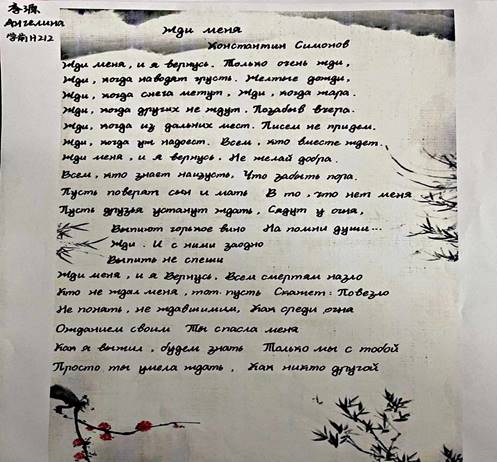 李源
Ангелина
Жди меня
Константин Симонов
Жди меня, и я вернусь. Только очень жди,
Жди, когда наводят грусть. Желтые дожди,
Жди, когда снега метут, Жди, когда жара.
Жди, когда других не ждут. Позабыв вчера.
Жди, когда из дальних мест. Писем не придем.
Жди, когда уж надоест. Всем, кто вместе ждет.
Жди меня, и я вернусь. Не желай добра.
Всем, кто знает наизусть, Что забыть пора.
Пусть поверят сын и мать В то, что нет меня
Пусть друзья устанут ждать, Сядут у огня,
Выпьют горькое вино На помин души...
Жди. И с ними заодно
Выпить не спеши
Жди меня, и я Вернусь. Всем смертям назло
Кто не ждал меня, тот пусть Скажет: Повезло
Не понять, не ждавшимим, Как среди огня
Ожданием своим Ты спасла меня
Как я выжил, будем знать Только мы с тобой
Просто ты умела ждать, Как никто другой